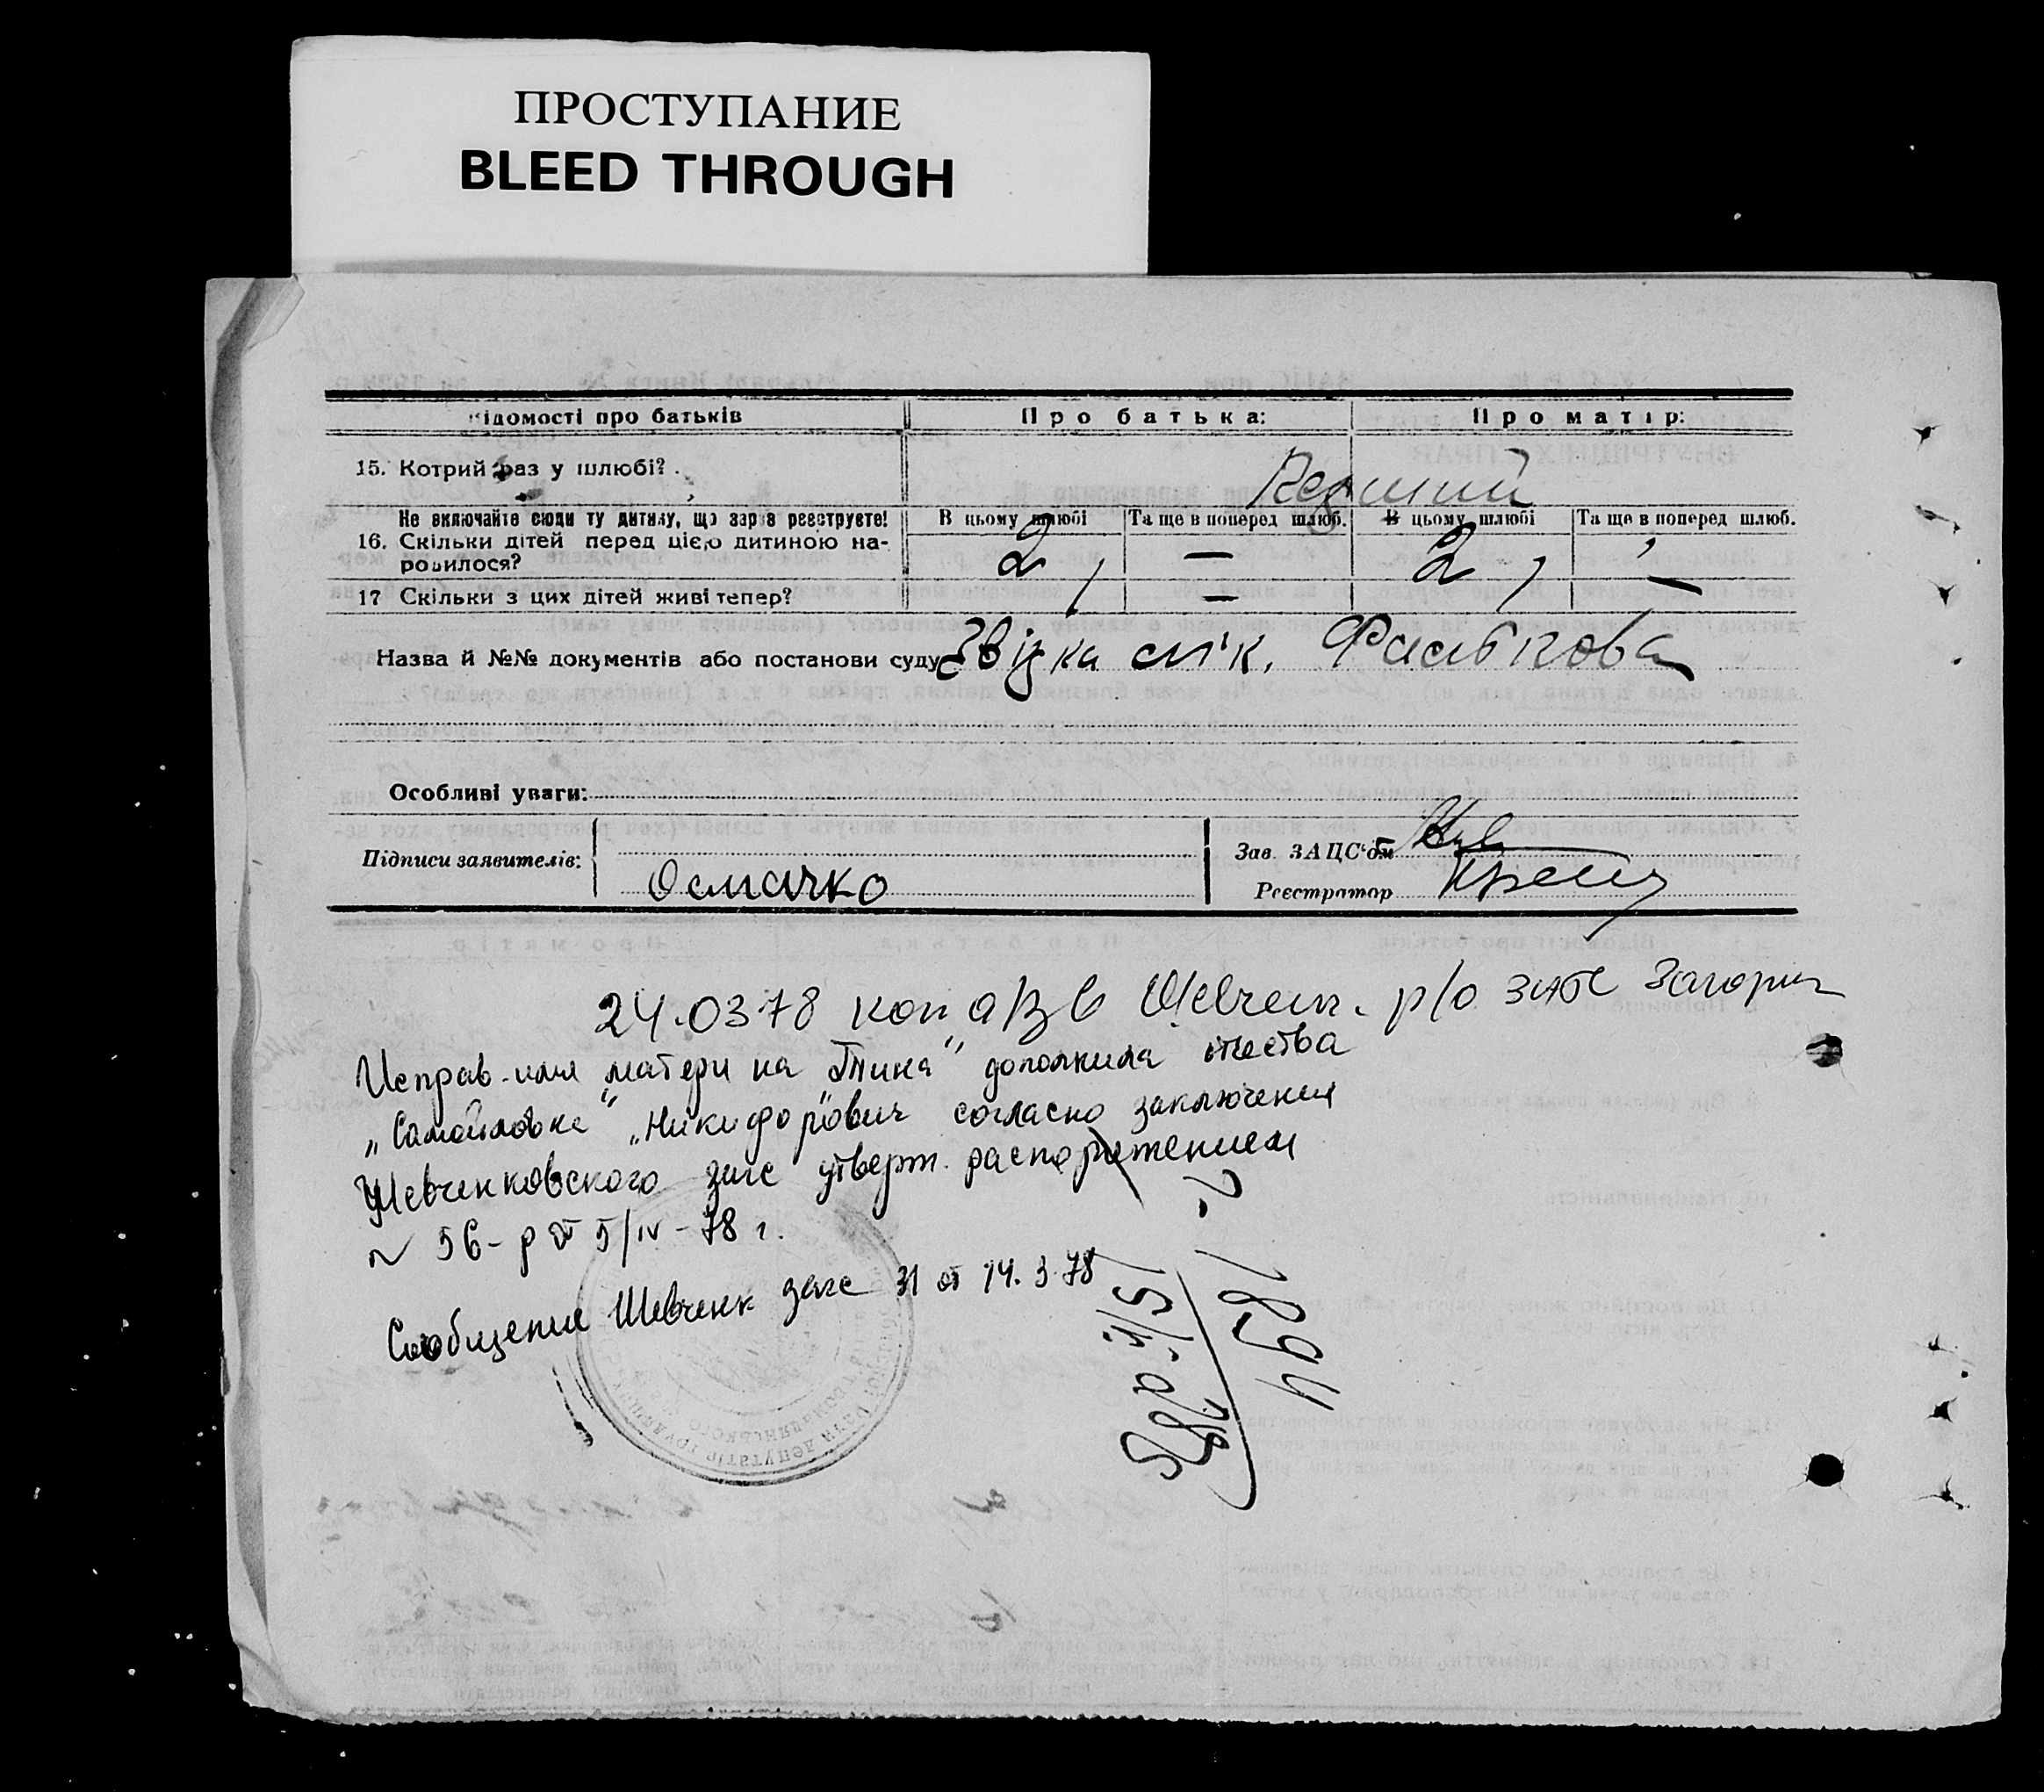 ПРОСТУПАНИЕ
BLEED THROUGH
Відомості про батьків
Про батька:
Про матір:
15. Котрий раз у шлюбі?
Не включайте сюди ту дитину, що зараз реєструєте!
16. Скільки дітей перед цією дитиною народилося?
В цьому шлюбі
Та ще в поперед шлюб.
В цьому шлюбі
Та ще в поперед шлюб.
2 — 2 —
17 Скільки з цих дітей живі тепер?
Назва й №№ документів або постанови суду
Особливі уваги:
Підписи заявителів:
Осмачко
Зав. ЗАЦС'ом
Реєстратор
24.03 78 коп а/з в Шевчен. р/о загс
Исправ. имя матери на "Тина" дополнила отчества
"Самойловна" "Никифорович согласно заключения
Шевченковского загс утверж. распоряжением
№ 56-р от 5/IV-78 г.
Сообщение Шевченк загс 31 от 14.3.78